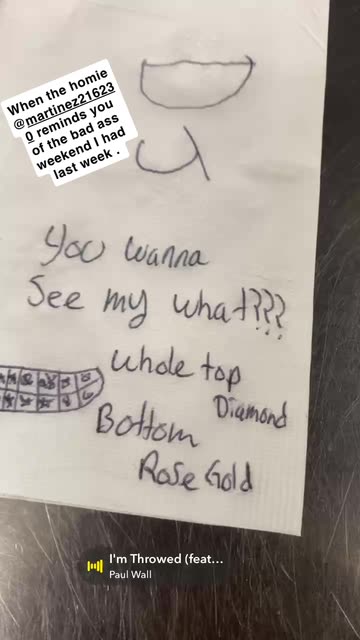 When the homie
@martinez21623
0 reminds you
of the bad ass
weekend I had
last week .
You wanna
See my what???
Whole top
Diamond
Bottom
Rose Gold
I'm Throwed (feat...
Paul Wall